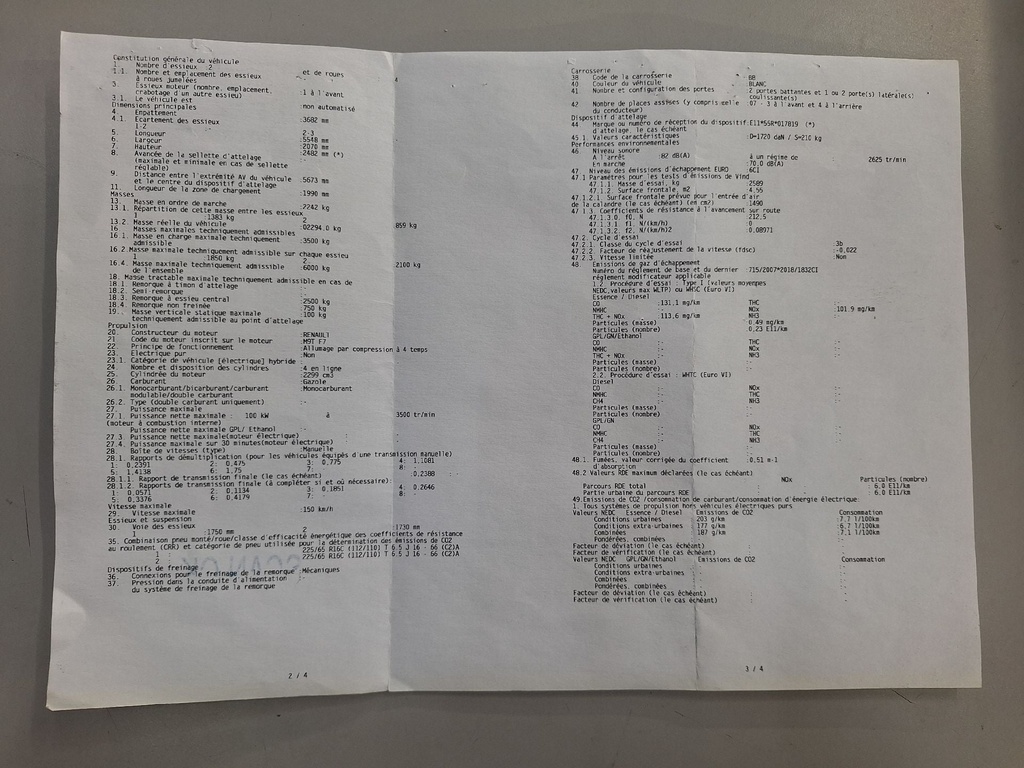 Constitution générale du véhicule
1. Nombre d'essieux :2
1.1. Nombre et emplacement des essieux et de roues
à roues jumelées :-
3. Essieux moteur (nombre, emplacement,
crabotage d'un autre essieu) :1 à l'avant
3.1. Le véhicule est :non automatisé
Dimensions principales
4. Empattement :3682 mm
4.1. Ecartement des essieux
1-2 2-3
5. Longueur :5548 mm
6. Largeur :2070 mm
7. Hauteur :2482 mm (*)
8. Avancée de la sellette d'attelage
(maximale et minimale en cas de sellette
réglable)
9. Distance entre l'extrémité AV du véhicule :5673 mm
et le centre du dispositif d'attelage
11. Longueur de la zone de chargement :1990 mm
Masses
13. Masse en ordre de marche :2242 kg
13.1. Répartition de cette masse entre les essieux
1 :1383 kg 2 :859 kg
13.2. Masse réelle du véhicule :02294.0 kg
16. Masses maximales techniquement admissibles
16.1. Masse en charge maximale techniquement :3500 kg
admissible
16.2.Masse maximale techniquement admissible sur chaque essieu
1 :1850 kg 2 :2100 kg
16.4. Masse maximale techniquement admissible :6000 kg
de l'ensemble
18. Masse tractable maximale techniquement admissible en cas de
18.1. Remorque à timon d'attelage :-
18.2. Semi-remorque :-
18.3. Remorque à essieu central :2500 kg
18.4. Remorque non freinée :750 kg
19. Masse verticale statique maximale :100 kg
techniquement admissible au point d'attelage
Propulsion
20. Constructeur du moteur :RENAULT
21. Code du moteur inscrit sur le moteur :M9T F7
22. Principe de fonctionnement :Allumage par compression à 4 temps
23. Electrique pur :Non
23.1. Catégorie de véhicule [électrique] hybride :-
24. Nombre et disposition des cylindres :4 en ligne
25. Cylindrée du moteur :2299 cm3
26. Carburant :Gazole
26.1. Monocarburant/bicarburant/carburant :Monocarburant
modulable/double carburant
26.2. Type (double carburant uniquement) :-
27. Puissance maximale
27.1. Puissance nette maximale : 100 kW à 3500 tr/min
(moteur à combustion interne)
Puissance nette maximale GPL/ Ethanol :-
27.3. Puissance nette maximale(moteur électrique) :-
27.4. Puissance maximale sur 30 minutes(moteur électrique) :-
28. Boîte de vitesses (type) :Manuelle
28.1. Rapports de démultiplication (pour les véhicules équipés d'une transmission manuelle)
1: 0.2391 2: 0.475 3: 0.775 4: 1.1081
5: 1.4138 6: 1.75 7: 8: -
28.1.1. Rapport de transmission finale (le cas échéant) :0.2388
28.1.2. Rapports de transmission finale (à compléter si et où nécessaire):
1: 0.0571 2: 0.1134 3: 0.1851 4: 0.2646
5: 0.3376 6: 0.4179 7: 8: -
Vitesse maximale
29. Vitesse maximale :150 km/h
Essieux et suspension
30. Voie des essieux
1 :1750 mm 2 :1730 mm
35. Combinaison pneu monté/roue/classe d'efficacité énergétique des coefficients de résistance
au roulement (CRR) et catégorie de pneu utilisée pour la détermination des émissions de CO2
1 : 225/65 R16C (112/110) T 6.5 J 16 - 66 (C2)A
2 : 225/65 R16C (112/110) T 6.5 J 16 - 66 (C2)A
Dispositifs de freinage
36. Connexions pour le freinage de la remorque :Mécaniques
37. Pression dans la conduite d'alimentation :-
du système de freinage de la remorque
2 / 4
Carrosserie
38. Code de la carrosserie :BB
40. Couleur du véhicule :BLANC
41. Nombre et configuration des portes :2 portes battantes et 1 ou 2 porte(s) latérale(s)
coulissante(s)
42. Nombre de places assises (y compris celle :07 - 3 à l'avant et 4 à l'arrière
du conducteur)
Dispositif d'attelage
44. Marque ou numéro de réception du dispositif:E11*55R*017819 (*)
d'attelage, le cas échéant
45.1. Valeurs caractéristiques :D=1720 daN / S=210 kg
Performances environnementales
46. Niveau sonore
A l'arrêt :82 dB(A) à un régime de 2625 tr/min
En marche :70.0 dB(A)
47. Niveau des émissions d'échappement EURO :6CI
47.1 Paramètres pour les tests d'émissions de Vind
47.1.1. Masse d'essai, kg :2589
47.1.2. Surface frontale, m2 :4.55
47.1.2.1. Surface frontale prévue pour l'entrée d'air
de la calandre (le cas échéant) (en cm2) :1490
47.1.3. Coefficients de résistance à l'avancement sur route
47.1.3.0. f0, N :212.5
47.1.3.1. f1, N/(km/h) :0
47.1.3.2. f2, N/(km/h)2 :0.08971
47.2. Cycle d'essai
47.2.1. Classe du cycle d'essai :3b
47.2.2 Facteur de réajustement de la vitesse (fdsc) :-0.022
47.2.3. Vitesse limitée :Non
48. Emissions de gaz d'échappement
Numéro du règlement de base et du dernier :715/2007*2018/1832CI
règlement modificateur applicable
1.2. Procédure d'essai : Type I (valeurs moyennes
NEDC,valeurs max WLTP) ou WHSC (Euro VI)
Essence / Diesel
CO :131.1 mg/km THC :-
NMHC :- NOx :101.9 mg/km
THC + NOx :113.6 mg/km NH3 :-
Particules (masse) :0.49 mg/km
Particules (nombre) :0.23 E11/km
GPL/GN/Ethanol
CO :- THC :-
NMHC :- NOx :-
THC + NOx :- NH3 :-
Particules (masse) :-
Particules (nombre) :-
2.2. Procédure d'essai : WHTC (Euro VI)
Diesel
CO :- NOx :-
NMHC :- THC :-
CH4 :- NH3 :-
Particules (masse) :-
Particules (nombre) :-
GPL/GN
CO :- NOx :-
NMHC :- THC :-
CH4 :- NH3 :-
Particules (masse) :-
Particules (nombre) :-
48.1. Fumées, valeur corrigée du coefficient :0.51 m-1
d'absorption
48.2 Valeurs RDE maximum déclarées (le cas échéant)
NOx Particules (nombre)
Parcours RDE total :- : 6.0 E11/km
Partie urbaine du parcours RDE :- : 6.0 E11/km
49.Emissions de CO2 /consommation de carburant/consommation d'énergie électrique:
1. Tous systèmes de propulsion hors véhicules électriques purs
Valeurs NEDC Essence / Diesel Emissions de CO2 Consommation
Conditions urbaines : 203 g/km :7.7 l/100km
Conditions extra-urbaines : 177 g/km :6.7 l/100km
Combinées : 187 g/km :7.1 l/100km
Pondérées, combinées :- :-
Facteur de déviation (le cas échéant) :-
Facteur de vérification (le cas échéant) :-
Valeurs NEDC GPL/GN/Ethanol Emissions de CO2 Consommation
Conditions urbaines :- :-
Conditions extra-urbaines :- :-
Combinées :- :-
Pondérées, combinées :- :-
Facteur de déviation (le cas échéant) :-
Facteur de vérification (le cas échéant) :-
3 / 4